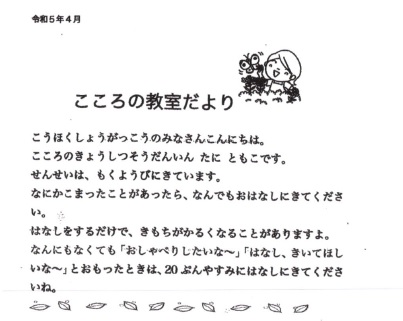 令和5年4月
こころの教室だより
こうほくしょうがっこうのみなさんこんにちは。
こころのきょうしつそうだんいん たに ともこです。
せんせいは、もくようびにきています。
なにかこまったことがあったら、なんでもおはなしにきてくださ
い。
はなしをするだけで、きもちがかるくなることがありますよ。
なんにもなくても「おしゃべりしたいな～」「はなし、きいてほし
いな～」とおもったときは、20ぷんやすみにはなしにきてくださ
いね。